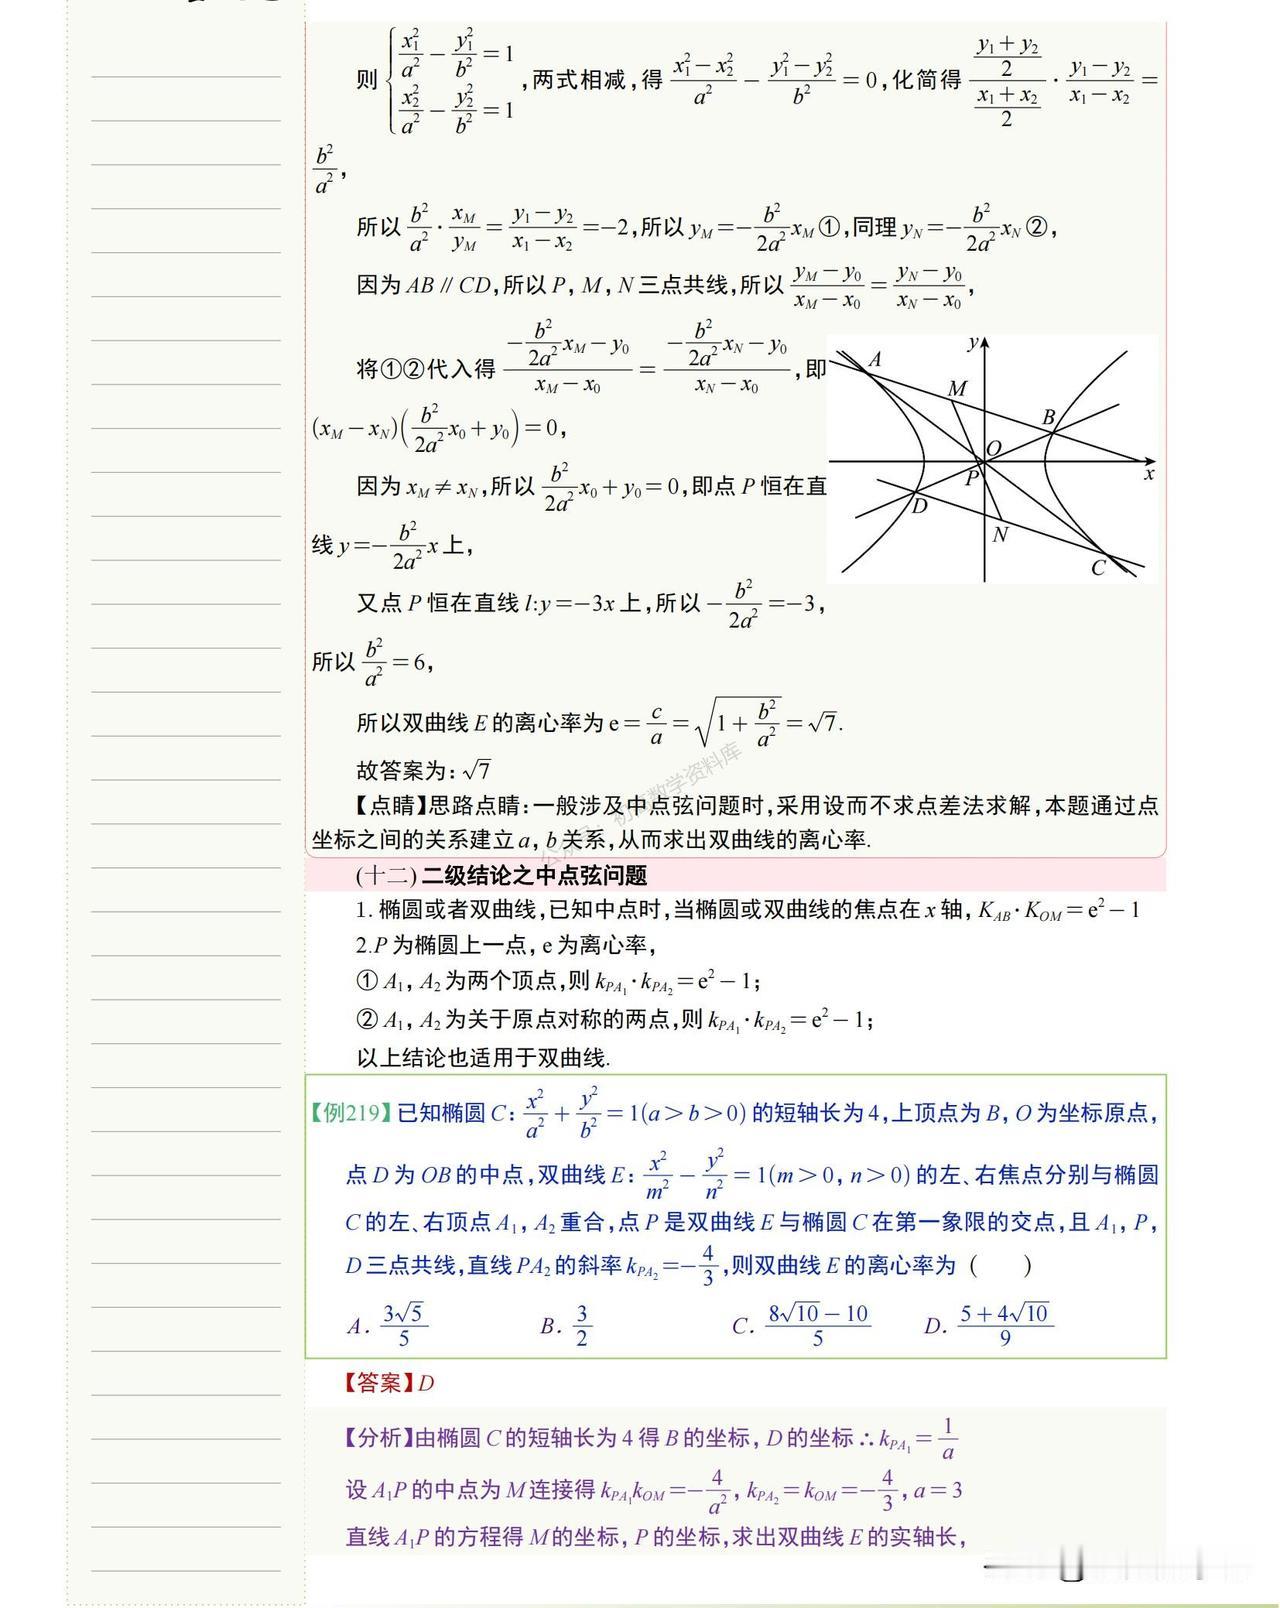 则 { x₁²/a² − y₁²/b² = 1, x₂²/a² − y₂²/b² = 1 ,两式相减,得 (x₁² − x₂²)/a² − (y₁² − y₂²)/b² = 0,化简得 ((y₁ + y₂)/2)/((x₁ + x₂)/2) · (y₁ − y₂)/(x₁ − x₂) =
b²/a²,
所以 b²/a² · x_M/y_M = (y₁ − y₂)/(x₁ − x₂) = −2,所以 y_M = −b²/2a² x_M ①,同理 y_N = −b²/2a² x_N ②,
因为 AB // CD,所以 P, M, N 三点共线,所以 (y_M − y₀)/(x_M − x₀) = (y_N − y₀)/(x_N − x₀),
将①②代入得 (−b²/2a² x_M − y₀)/(x_M − x₀) = (−b²/2a² x_N − y₀)/(x_N − x₀),即
(x_M − x_N)(b²/2a² x₀ + y₀) = 0,
因为 x_M ≠ x_N,所以 b²/2a² x₀ + y₀ = 0,即点 P 恒在直
线 y = −b²/2a² x 上,
又点 P 恒在直线 l:y = −3x 上,所以 −b²/2a² = −3,
所以 b²/a² = 6,
y
A
M
B
O
x
P
D
N
C
所以双曲线 E 的离心率为 e = c/a = √(1 + b²/a²) = √7.
故答案为:√7
【点睛】思路点睛:一般涉及中点弦问题时,采用设而不求点差法求解,本题通过点
坐标之间的关系建立 a, b 关系,从而求出双曲线的离心率.
(十二) 二级结论之中点弦问题
1. 椭圆或者双曲线,已知中点时,当椭圆或双曲线的焦点在 x 轴, K_AB · K_OM = e² − 1
2.P 为椭圆上一点, e 为离心率,
① A₁, A₂ 为两个顶点,则 k_PA₁ · k_PA₂ = e² − 1;
② A₁, A₂ 为关于原点对称的两点,则 k_PA₁ · k_PA₂ = e² − 1;
以上结论也适用于双曲线.
【例219】已知椭圆 C: x²/a² + y²/b² = 1(a > b > 0) 的短轴长为 4,上顶点为 B, O 为坐标原点,
点 D 为 OB 的中点,双曲线 E: x²/m² − y²/n² = 1(m > 0, n > 0) 的左、右焦点分别与椭圆
C 的左、右顶点 A₁, A₂ 重合,点 P 是双曲线 E 与椭圆 C 在第一象限的交点,且 A₁, P,
D 三点共线,直线 PA₂ 的斜率 k_PA₂ = −4/3,则双曲线 E 的离心率为 ( )
A. 3√5/5 B. 3/2 C. (8√10 − 10)/5 D. (5 + 4√10)/9
【答案】D
【分析】由椭圆 C 的短轴长为 4 得 B 的坐标, D 的坐标 ∴ k_PA₁ = 1/a
设 A₁P 的中点为 M 连接得 k_PA₁ k_OM = −4/a², k_PA₂ = k_OM = −4/3, a = 3
直线 A₁P 的方程得 M 的坐标, P 的坐标,求出双曲线 E 的实轴长,